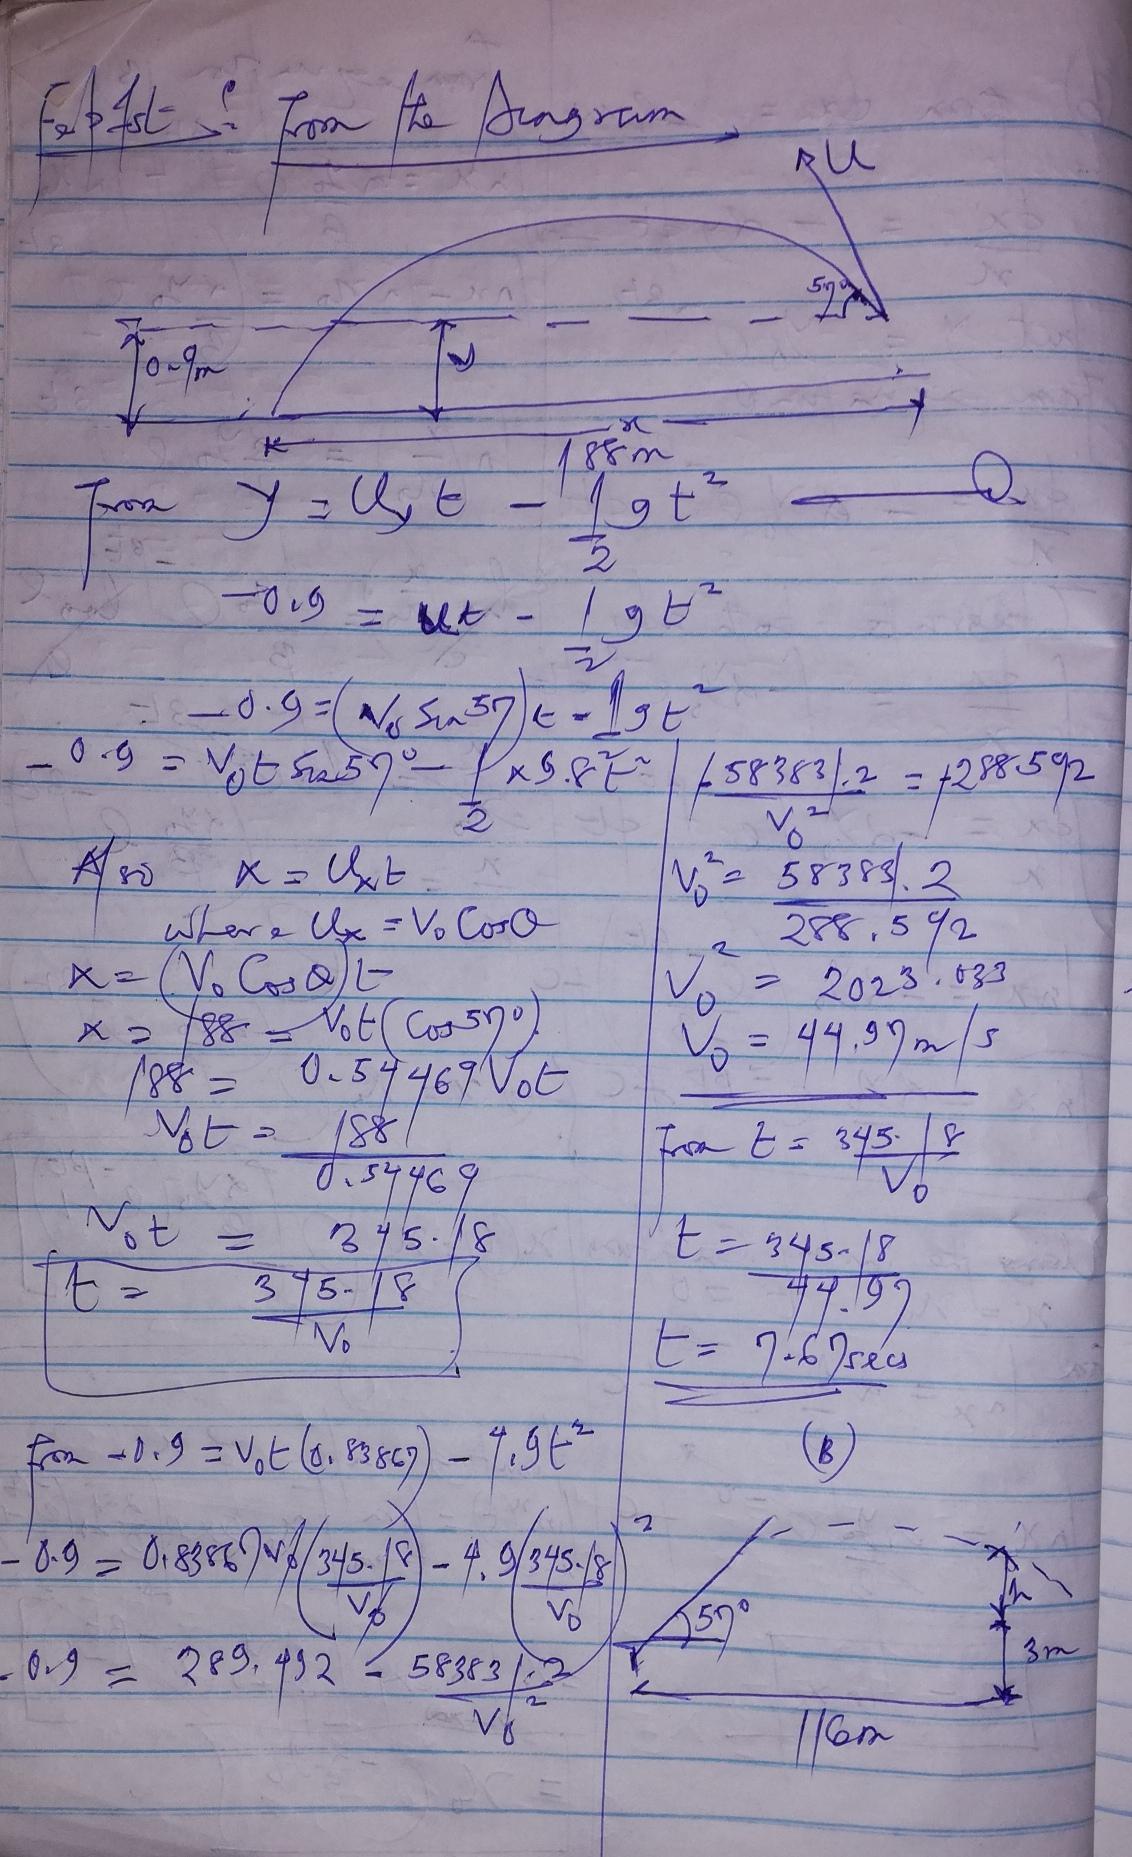 From the Diagram
U
57°
0.9m
y
x
188m
From y = Uyt - 1/2 gt²
-0.9 = ut - 1/2 gt²
-0.9 = (V₀ Sin 57)t - 1 gt²
-0.9 = V₀t Sin 57° - 1/2 x 9.8t²
Also x = Uxt
where Ux = V₀ Cosθ
x = (V₀ Cosθ)t
x = 188 = V₀t(Cos 57°)
188 = 0.54469 V₀t
V₀t = 188/0.54469
V₀t = 345.18
t = 345.18/V₀
From -0.9 = V₀t(0.83867) - 4.9t²
-0.9 = 0.83867V₀(345.18/V₀) - 4.9(345.18/V₀)²
-0.9 = 289.492 - 583831.2/V₀²
583831.2/V₀² = 288.592
V₀² = 583831.2/288.592
V₀² = 2023.033
V₀ = 44.97m/s
From t = 345.18/V₀
t = 345.18/44.97
t = 7.67secs
(B)
57°
h
3m
116m